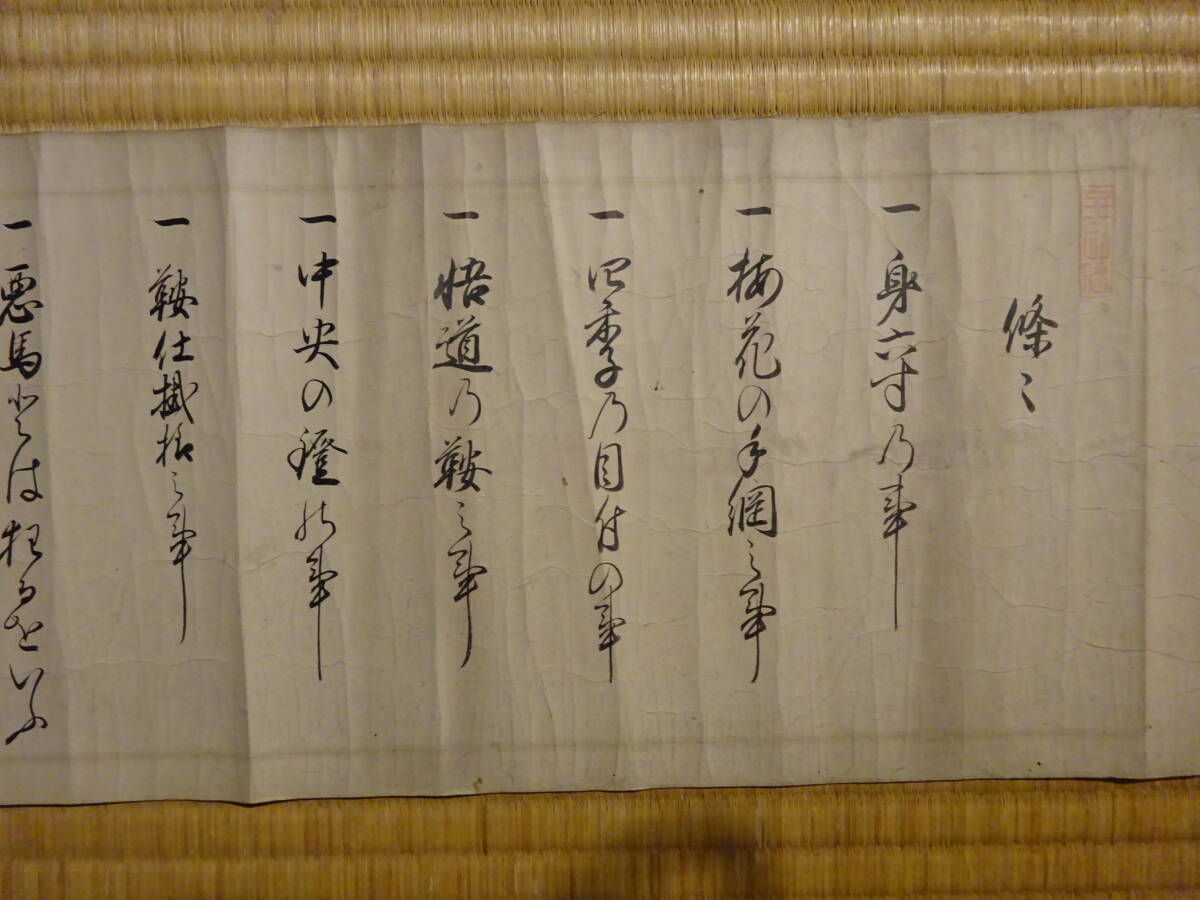 條々
一 身六寸乃事
一 梅花の手綱之事
一 四季乃目付の事
一 悟道乃鞍之事
一 中央の鐙の事
一 鞍仕掛㨂之事
一 悪馬とは狂るをいふ